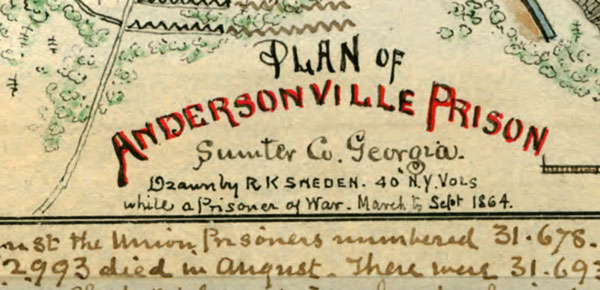 PLAN OF
ANDERSONVILLE PRISON
Sumter Co. Georgia.
Drawn by R K SNEDEN. 40" N.Y. VOLS
while a Prisoner of War. March to Sept 1864.
the Union Prisoners numbered 31.678.
2.993 died in August. There were 31.693